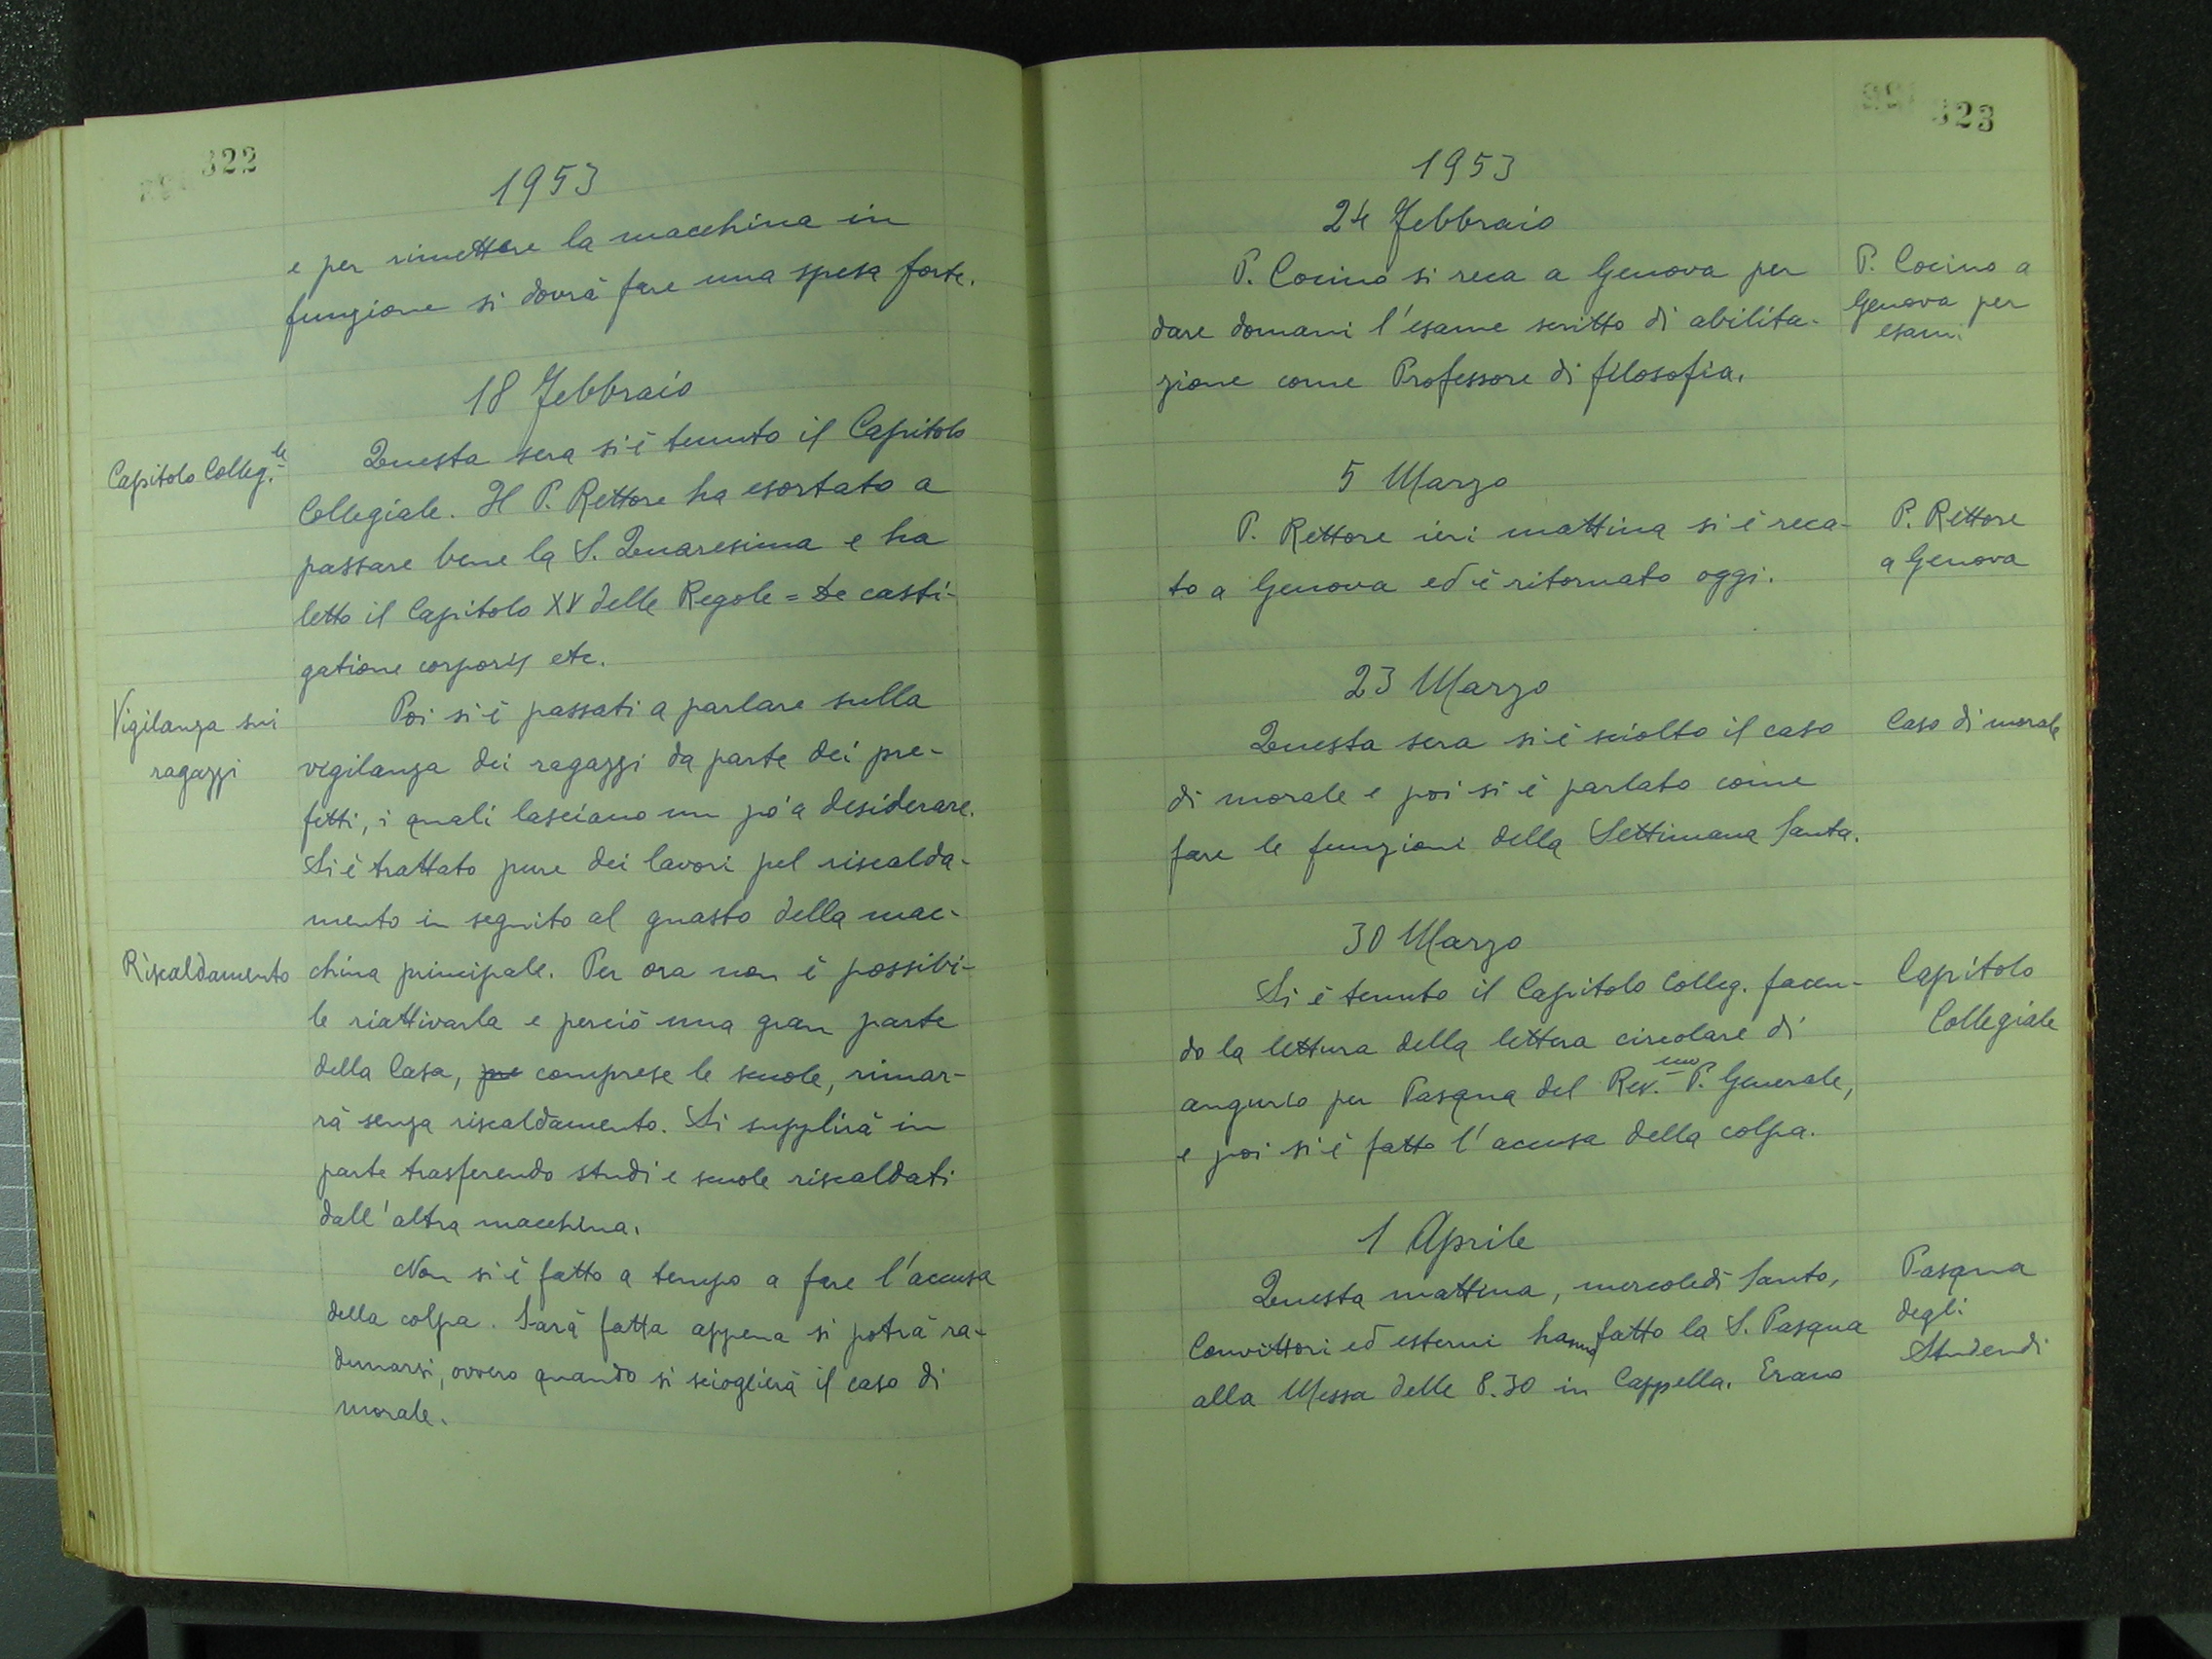 322
1953
e per rimettere la macchina in
funzione si dovrà fare una spesa forte.
18 Febbraio
Capitolo Colleg.le
Questa sera si è tenuto il Capitolo
Collegiale. Il P. Rettore ha esortato a
passare bene la S. Quaresima e ha
letto il Capitolo XV delle Regole = De casti-
gatione corporis etc.
Vigilanza sui
ragazzi
Poi si è passati a parlare sulla
vigilanza dei ragazzi da parte dei pre-
fetti, i quali lasciano un pò a desiderare.
Si è trattato pure dei lavori pel riscalda-
mento in seguito al guasto della mac-
Riscaldamento
china principale. Per ora non è possibi-
le riattivarla e perciò una gran parte
della Casa, pre comprese le scuole, rimar-
rà senza riscaldamento. Si supplirà in
parte trasferendo studi e scuole riscaldati
dall'altra macchina.
Non si è fatto a tempo a fare l'accusa
della colpa. Sarà fatta appena si potrà ra-
dunarsi, ovvero quando si scioglierà il caso di
morale.
323
1953
24 Febbraio
P. Cocino si reca a Genova per
dare domani l'esame scritto di abilita-
zione come Professore di filosofia.
P. Cocino a
Genova per
esami
5 Marzo
P. Rettore ieri mattina si è reca-
to a Genova ed è ritornato oggi.
P. Rettore
a Genova
23 Marzo
Questa sera si è sciolto il caso
di morale e poi si è parlato come
fare le funzioni della Settimana Santa.
Caso di morale
30 Marzo
Si è tenuto il Capitolo Colleg. facen-
do la lettura della lettera circolare di
augurio per Pasqua del Rev.mo P. Generale,
e poi si è fatto l'accusa della colpa.
Capitolo
Collegiale
1 Aprile
Questa mattina, mercoledì Santo,
Convittori ed esterni hanno fatto la S. Pasqua
alla Messa delle 8.30 in Cappella. Erano
Pasqua
degli
Studendi